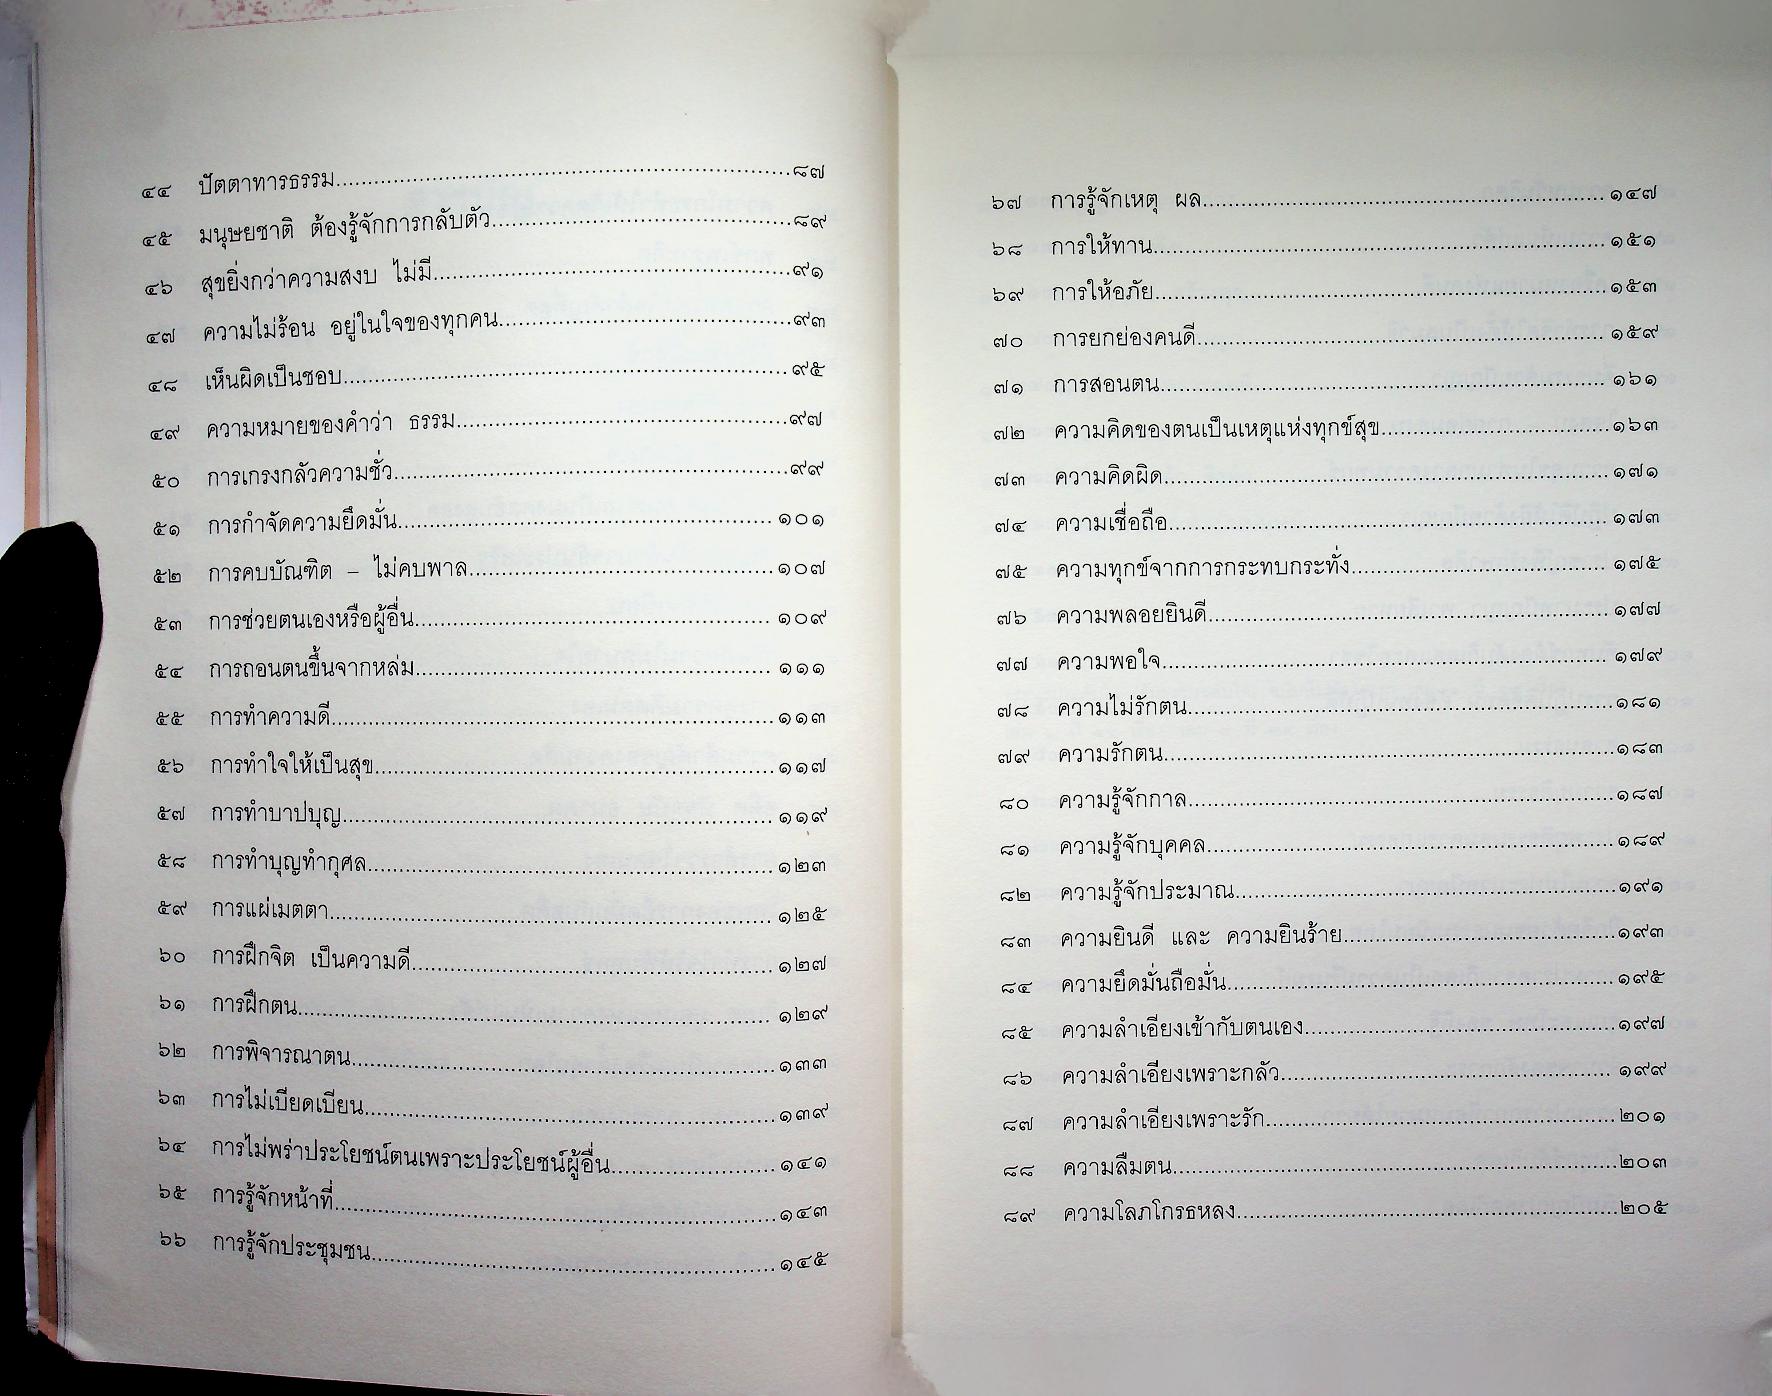 ๔๔ ปัตตาทารธรรม ๘๗
๔๕ มนุษยชาติ ต้องรู้จักการกลับตัว ๘๙
๔๖ สุขยิ่งกว่าความสงบ ไม่มี ๙๑
๔๗ ความไม่ร้อน อยู่ในใจของทุกคน ๙๓
๔๘ เห็นผิดเป็นชอบ ๙๕
๔๙ ความหมายของคำว่า ธรรม ๙๗
๕๐ การเกรงกลัวความชั่ว ๙๙
๕๑ การกำจัดความยึดมั่น ๑๐๑
๕๒ การคบบัณฑิต – ไม่คบพาล ๑๐๗
๕๓ การช่วยตนเองหรือผู้อื่น ๑๐๙
๕๔ การถอนตนขึ้นจากหล่ม ๑๑๑
๕๕ การทำความดี ๑๑๓
๕๖ การทำใจให้เป็นสุข ๑๑๗
๕๗ การทำบาปบุญ ๑๑๙
๕๘ การทำบุญทำกุศล ๑๒๓
๕๙ การแผ่เมตตา ๑๒๕
๖๐ การฝึกจิต เป็นความดี ๑๒๗
๖๑ การฝึกตน ๑๒๙
๖๒ การพิจารณาตน ๑๓๓
๖๓ การไม่เบียดเบียน ๑๓๙
๖๔ การไม่พร่าประโยชน์ตนเพราะประโยชน์ผู้อื่น ๑๔๑
๖๕ การรู้จักหน้าที่ ๑๔๓
๖๖ การรู้จักประชุมชน ๑๔๕
๖๗ การรู้จักเหตุ ผล ๑๔๗
๖๘ การให้ทาน ๑๕๑
๖๙ การให้อภัย ๑๕๓
๗๐ การยกย่องคนดี ๑๕๙
๗๑ การสอนตน ๑๖๑
๗๒ ความคิดของตนเป็นเหตุแห่งทุกข์สุข ๑๖๓
๗๓ ความคิดผิด ๑๗๑
๗๔ ความเชื่อถือ ๑๗๓
๗๕ ความทุกข์จากการกระทบกระทั่ง ๑๗๕
๗๖ ความพลอยยินดี ๑๗๗
๗๗ ความพอใจ ๑๗๙
๗๘ ความไม่รักตน ๑๘๑
๗๙ ความรักตน ๑๘๓
๘๐ ความรู้จักกาล ๑๘๗
๘๑ ความรู้จักบุคคล ๑๘๙
๘๒ ความรู้จักประมาณ ๑๙๑
๘๓ ความยินดี และ ความยินร้าย ๑๙๓
๘๔ ความยึดมั่นถือมั่น ๑๙๕
๘๕ ความลำเอียงเข้ากับตนเอง ๑๙๗
๘๖ ความลำเอียงเพราะกลัว ๑๙๙
๘๗ ความลำเอียงเพราะรัก ๒๐๑
๘๘ ความลืมตน ๒๐๓
๘๙ ความโลภโกรธหลง ๒๐๕